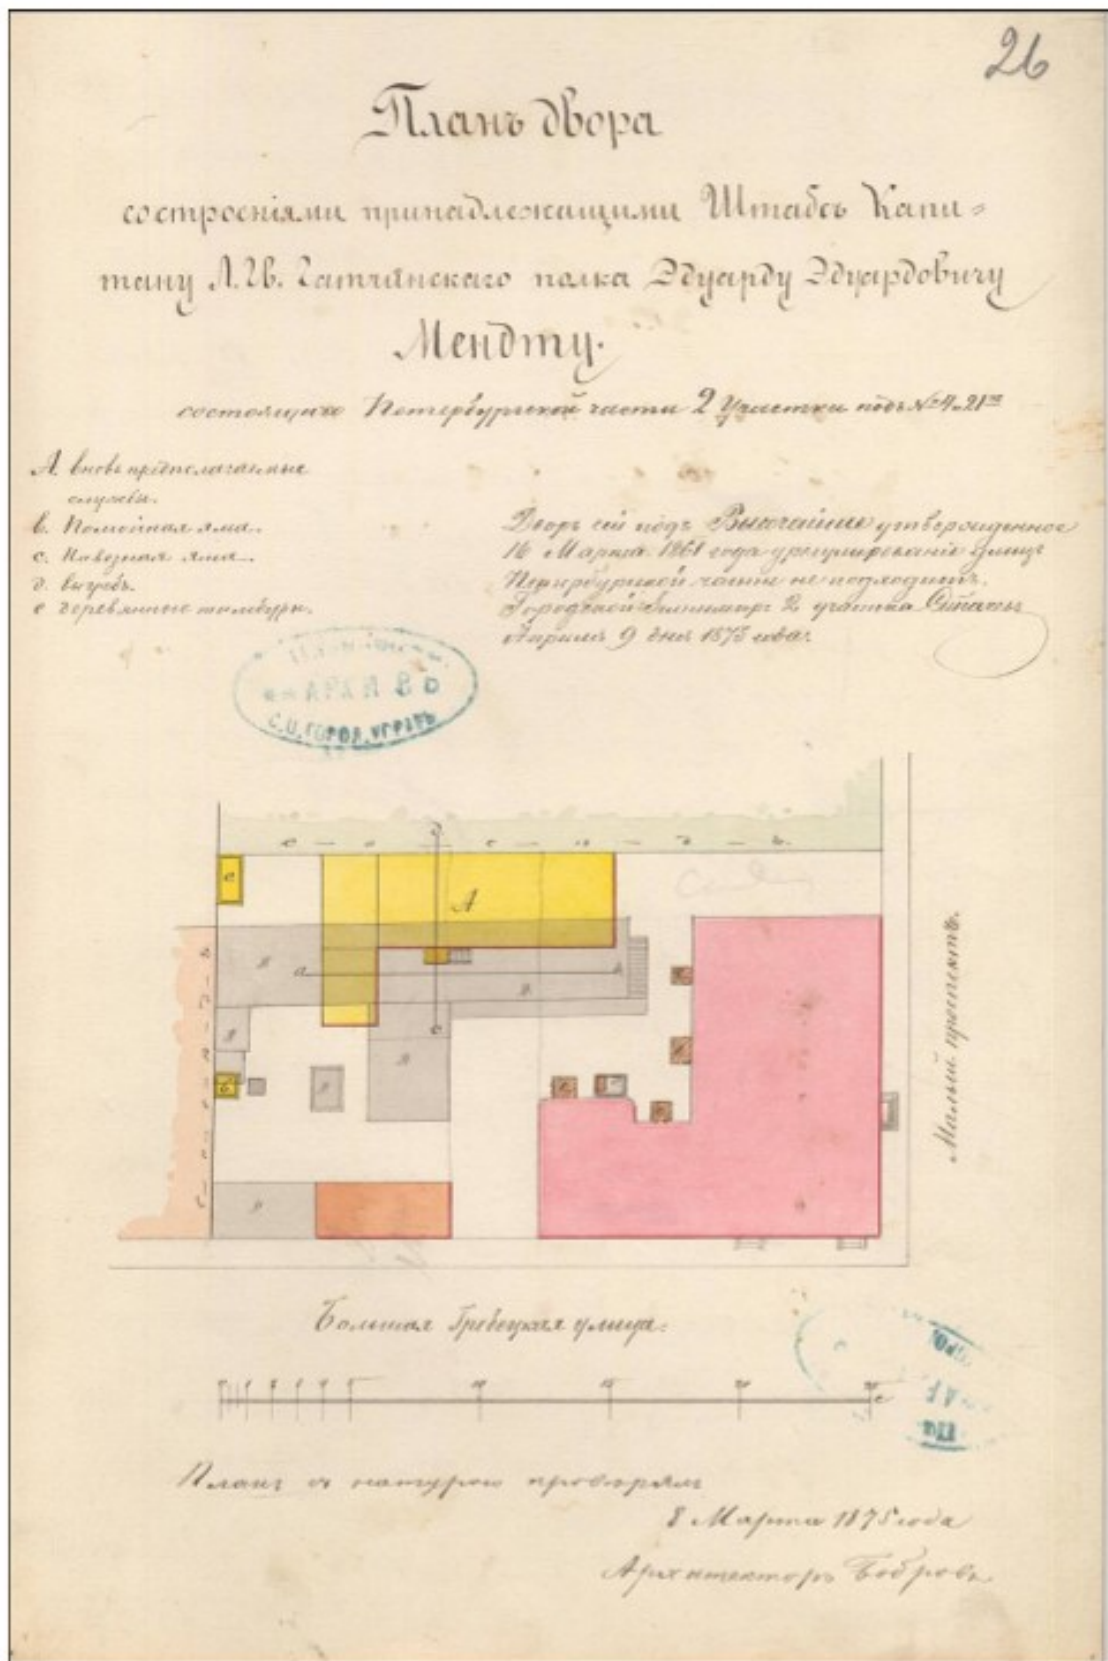 26
Планъ двора
состроеніями принадлежащими Штабсъ Капи=
тану Л. Гв. Гатчинскаго полка Эдуарду Эдуардовичу
Мендту.
состоящаго Петербургской части 2 Участка подъ №
А. вновь предполагаемые
службы.
в. Помойная яма.
с. Навозная яма.
д. выгребъ.
е деревянные
Дворъ сей подъ Высочайше утвержденное
16 Марта 1861 года урегулированіе улицъ
Петербургской части не подходитъ.
Городской 2 участка
Апрѣля 9 дня 1875 года.
АРХИВЪ
С.П. ГОРОД. УПРАВЫ
с а с а д ъ
А
е
а
с
Малый проспектъ.
Большая Гребецкая улица.
Планъ съ натурою провѣрялъ
8 Марта 1875 года
Архитекторъ Бобровъ